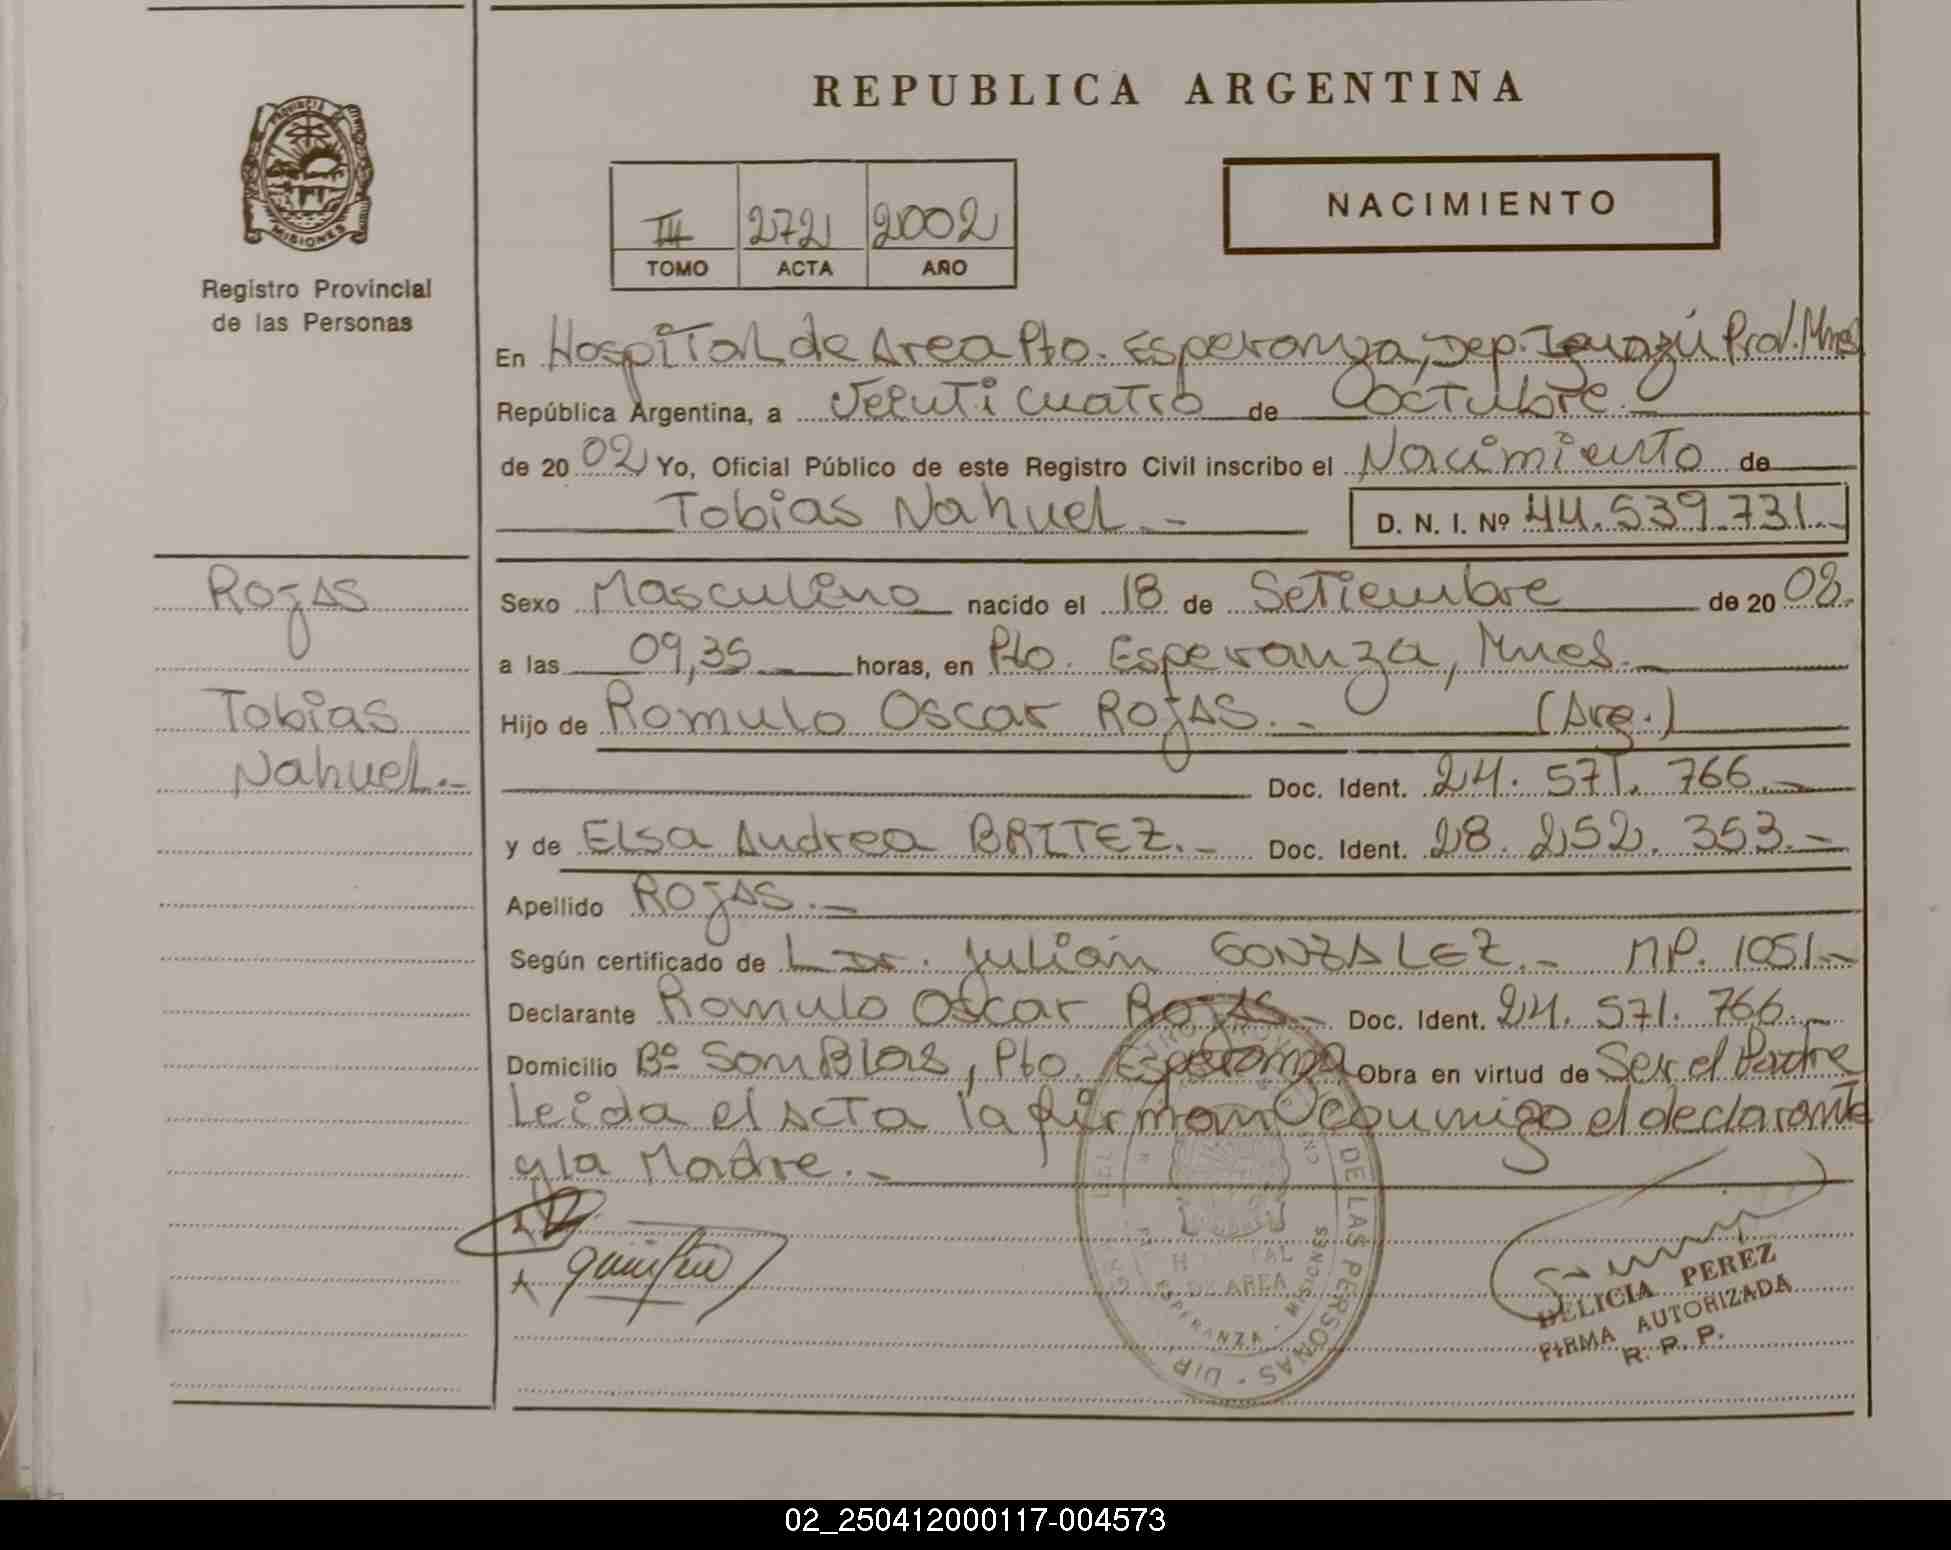 REPUBLICA ARGENTINA
PROVINCIA DE MISIONES
Registro Provincial
de las Personas
III 272 2002
TOMO ACTA AÑO
NACIMIENTO
En Hospital de Area Pto. Esperanza, Dep. Iguazú Prov. Mnes
República Argentina, a Veinticuatro de Octubre.
de 2002 Yo, Oficial Público de este Registro Civil inscribo el Nacimiento de
Tobias Nahuel.- D. N. I. Nº 44.539.731.-
Rojas
Tobias
Nahuel.-
Sexo Masculino nacido el 18 de Setiembre de 2002.
a las 09,35 horas, en Pto. Esperanza, Mnes.-
Hijo de Romulo Oscar ROJAS.- (Arg.)
Doc. Ident. 24. 571. 766.-
y de Elsa Andrea BRITEZ.- Doc. Ident. 28. 252. 353.-
Apellido ROJAS.-
Según certificado de Dr. Julián GONZALEZ.- MP. 1051.-
Declarante Romulo Oscar Rojas.- Doc. Ident. 24. 571. 766.-
Domicilio Bº San Blas, Pto. Esperanza Obra en virtud de Ser el Padre
Leida el acta la firman conmigo el declarante
y la Madre.-
DE LAS PERSONAS
HOSPITAL
DE AREA
ESPERANZA - MISIONES
DELICIA PEREZ
FIRMA AUTORIZADA
R. P. P.
02_250412000117-004573